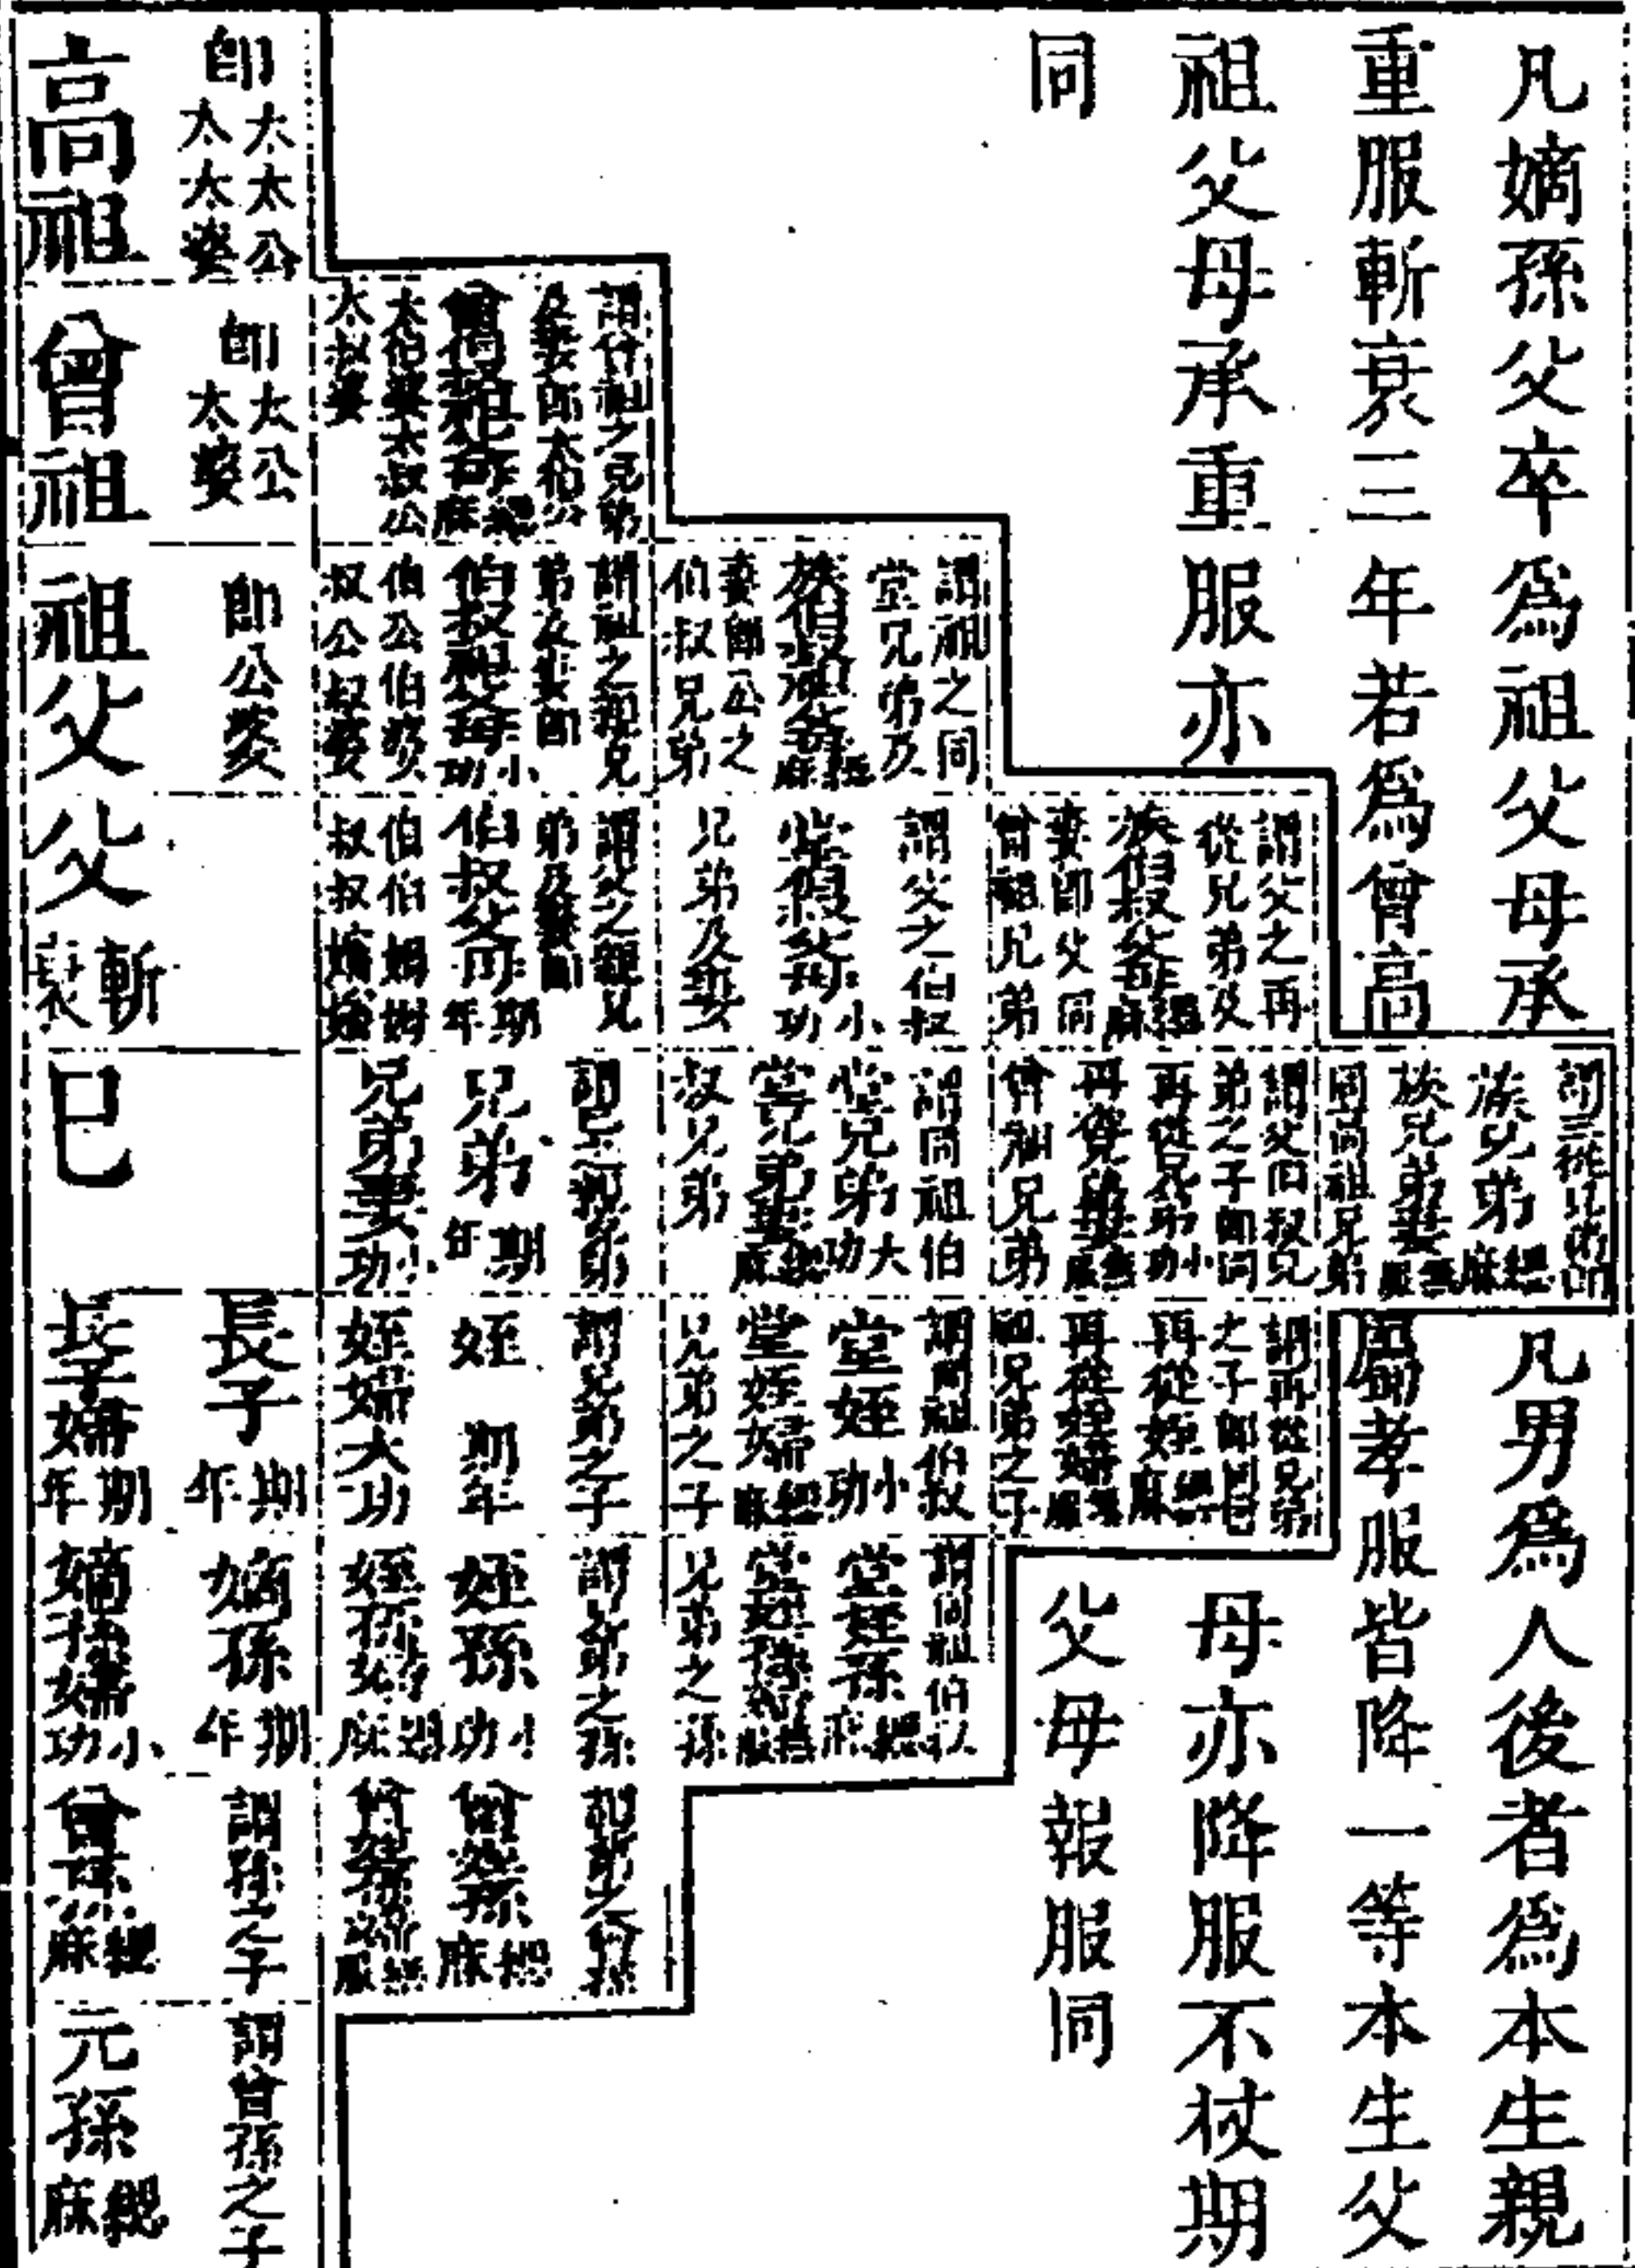 凡嫡孫父卒爲祖父母承
重服斬衰三年若爲曾高
祖父母承重服亦
同
凡男爲人後者爲本生親
屬孝服皆降一等本生父
母亦降服不杖期
父母報服同
謂三從兄弟卽
族兄弟緦麻
族兄弟妻無服
同高祖兄弟
謂父之再
從兄弟及
族伯叔父母緦麻
妻卽父同
曾祖兄弟
謂父伯叔兄
弟之子卽同
再從兄弟小功
再從兄弟妻無服
曾祖兄弟
謂再從兄弟
之子卽同
再從姪緦麻
再從姪婦無服
祖兄弟之子
謂祖之同
堂兄弟及
族伯叔祖父母緦麻
妻卽公之
伯叔兄弟
謂父之伯叔
堂伯叔父母小功
兄弟及妻
謂同祖伯
堂兄弟大功
堂兄弟妻緦麻
叔兄弟
謂同祖伯叔
堂姪小功
堂姪婦緦麻
兄弟之子
謂同祖伯叔
堂姪孫緦麻
堂姪孫婦無服
兄弟之孫
謂曾祖之兄弟
及妻卽太伯公
曾伯叔祖父母緦麻
太伯婆太叔公
太叔婆
謂祖之親兄
弟及妻卽
伯叔祖父母小功
伯公伯婆
叔公叔婆
謂父之親兄
弟及妻卽
伯叔父母期年
伯伯姆姆
叔叔嬸嬸
謂己之親兄弟
兄弟期年
兄弟妻小功
謂兄弟之子
姪期年
姪婦大功
謂兄弟之孫
姪孫小功
姪孫婦緦麻
兄弟之曾孫
曾姪孫緦麻
曾姪孫婦無服
卽太太公太太婆
高祖
卽太公太婆
曾祖
卽公婆
祖父
父斬衰
己
長子期年
長子婦期年
嫡孫期年
嫡孫婦小功
謂孫之子
曾孫緦麻
謂曾孫之子
元孫緦麻